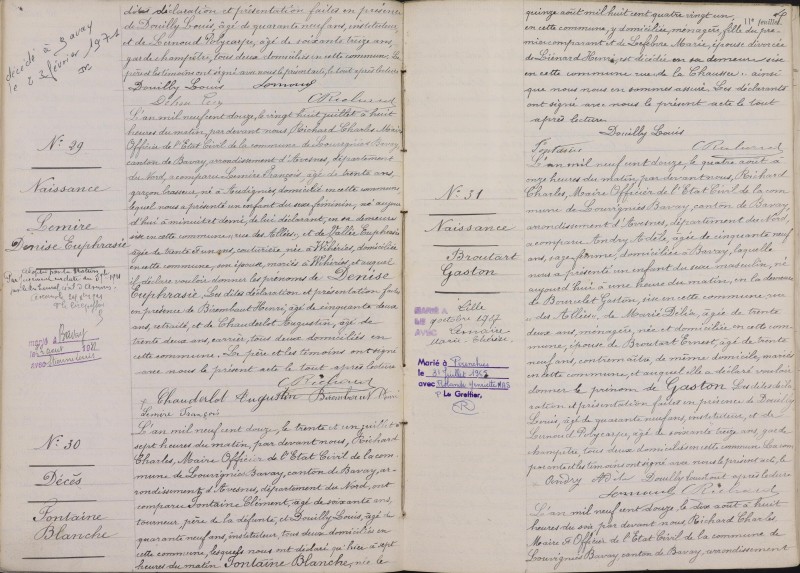 dites déclaration et présentation faites en présence
de Douilly Louis, âgé de quarante neuf ans, instituteur,
et de Lernoud Polycarpe, âgé de soixante treize ans,
garde champêtre, tous deux domiciliés en cette commune. Le
père et les témoins ont signé avec nous le présent acte, le tout après lecture
Douilly Louis Lernoud
CRichard
décédé à Bavay
le 23 février 197
N° 29
Naissance
Lemire
Denise Euphrasie
L'an mil neuf cent douze, le vingt huit juillet à huit
heures du matin, par devant nous Richard Charles Maire
Officier de l'Etat Civil de la commune de Louvignies Bavay,
canton de Bavay, arrondissement d'Avesnes, département
du Nord, a comparu Lemire François, âgé de trente ans,
garçon brasseur, né à Audignies, domicilié en cette commune,
lequel nous a présenté un enfant du sexe féminin, né aujour
d'hui à minuit et demi, de lui déclarant, en sa demeure
sise en cette commune, rue des Alliés, et de Vallée Euphrasie
âgée de trente ans, couturière, née à Wihéries, domiciliée
en cette commune, son épouse, mariés à Wihéries, et auquel
il a déclaré vouloir donner les prénoms de Denise
Euphrasie. Les dites déclaration et présentation faites
en présence de Bisambaut Henri, âgé de cinquante deux
ans, retraité, et de Chauderlot Augustin, âgé de
trente deux ans, carrier, tous deux domiciliés en
cette commune. Le père et les témoins ont signé
avec nous le présent acte le tout après lecture
CRichard
Chauderlot Augustin
Lemire François
marié à Bavay
N° 30
Décès
Fontaine
Blanche
L'an mil neuf cent douze, le trente et un juillet à
sept heures du matin, par devant nous, Richard
Charles, Maire Officier de l'Etat Civil de la com
mune de Louvignies Bavay, canton de Bavay, ar
rondissement d'Avesnes, département du Nord, ont
comparu Fontaine Clément, âgé de soixante ans,
tourneur, père de la défunte, et Douilly Louis, âgé de
quarante neuf ans, instituteur, tous deux domiciliés en
cette commune, lesquels nous ont déclaré qu'hier à sept
heures du matin Fontaine Blanche, née le
11e feuillet
quinze août mil huit cent quatre vingt un,
en cette commune, y domiciliée, ménagère, fille du pre
mier comparant et de Lefebvre Marie, épouse divorcée
de Liénard Henri, est décédée en sa demeure sise
en cette commune rue de la Chaussée ainsi
que nous nous en sommes assuré. Les déclarants
ont signé avec nous le présent acte le tout
après lecture
Douilly Louis
Fontaine CRichard
N° 31
Naissance
Broutart
Gaston
L'an mil neuf cent douze, le quatre août à
onze heures du matin, par devant nous, Richard
Charles, Maire Officier de l'Etat Civil de la com
mune de Louvignies Bavay, canton de Bavay,
arrondissement d'Avesnes, département du Nord,
a comparu Andry Adèle, âgée de cinquante neuf
ans, sage femme, domiciliée à Bavay, laquelle
nous a présenté un enfant du sexe masculin, né
aujourd'hui à une heure du matin, en la demeure
de Broutart Gaston, sise en cette commune, rue
des Alliés, de Marie Délia, âgée de trente
deux ans, ménagère, née et domiciliée en cette com
mune, épouse de Broutart Ernest, âgé de trente
neuf ans, contremaître, de même domicile, mariés
en cette commune, et auquel elle a déclaré vouloir
donner le prénom de Gaston. Les dites décla
ration et présentation faites en présence de Douilly
Louis, âgé de quarante neuf ans, instituteur, et de
Lernoud Polycarpe, âgé de soixante treize ans, garde
champêtre, tous deux domiciliés en cette commune. La com
parante et les témoins ont signé avec nous le présent acte, le
tout après lecture
Andry Adèle Douilly Louis
Lernoud CRichard
Marié à Lille
le octobre 1947
avec Lemaire
Marie Thérèse
Marié à Pérenchies
le juillet 196
avec
P Le Greffier,
L'an mil neuf cent douze, le dix août à huit
heures du soir par devant nous, Richard Charles
Maire et Officier de l'Etat Civil de la commune de
Louvignies Bavay canton de Bavay, arrondissement